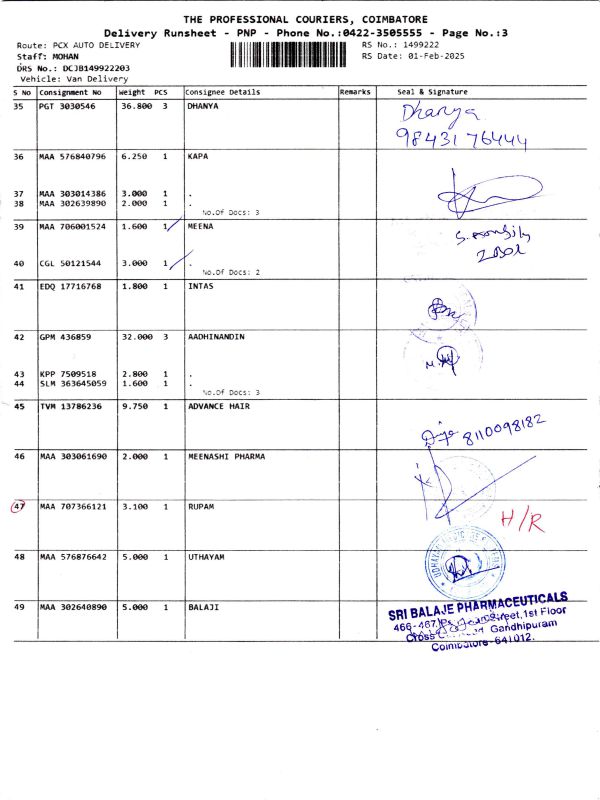 THE PROFESSIONAL COURIERS, COIMBATORE
Delivery Runsheet - PNP - Phone No.:0422-3505555 - Page No.:3
Route: PCX AUTO DELIVERY RS No.: 1499222
Staff: MOHAN RS Date: 01-Feb-2025
DRS No.: DCJB149922203
Vehicle: Van Delivery
S No Consignment No Weight PCS Consignee Details Remarks Seal & Signature
35 PGT 3030546 36.800 3 DHANYA Dhanya
9843176444
36 MAA 576840796 6.250 1 KAPA
37 MAA 303014386 3.000 1 .
38 MAA 302639890 2.000 1 .
No.Of Docs: 3
39 MAA 706001524 1.600 1 MEENA
40 CGL 50121544 3.000 1 .
No.Of Docs: 2
41 EDQ 17716768 1.800 1 INTAS
42 GPM 436859 32.000 3 AADHINANDIN
43 KPP 7509518 2.800 1 .
44 SLM 363645059 1.600 1 .
No.Of Docs: 3
45 TVM 13786236 9.750 1 ADVANCE HAIR
8110098182
46 MAA 303061690 2.000 1 MEENASHI PHARMA
47 MAA 707366121 3.100 1 RUPAM H/R
48 MAA 576876642 5.000 1 UTHAYAM
49 MAA 302640890 5.000 1 BALAJI
SRI BALAJE PHARMACEUTICALS
466-467, Street, 1st Floor
Cross Gandhipuram
Coimbatore-641012.